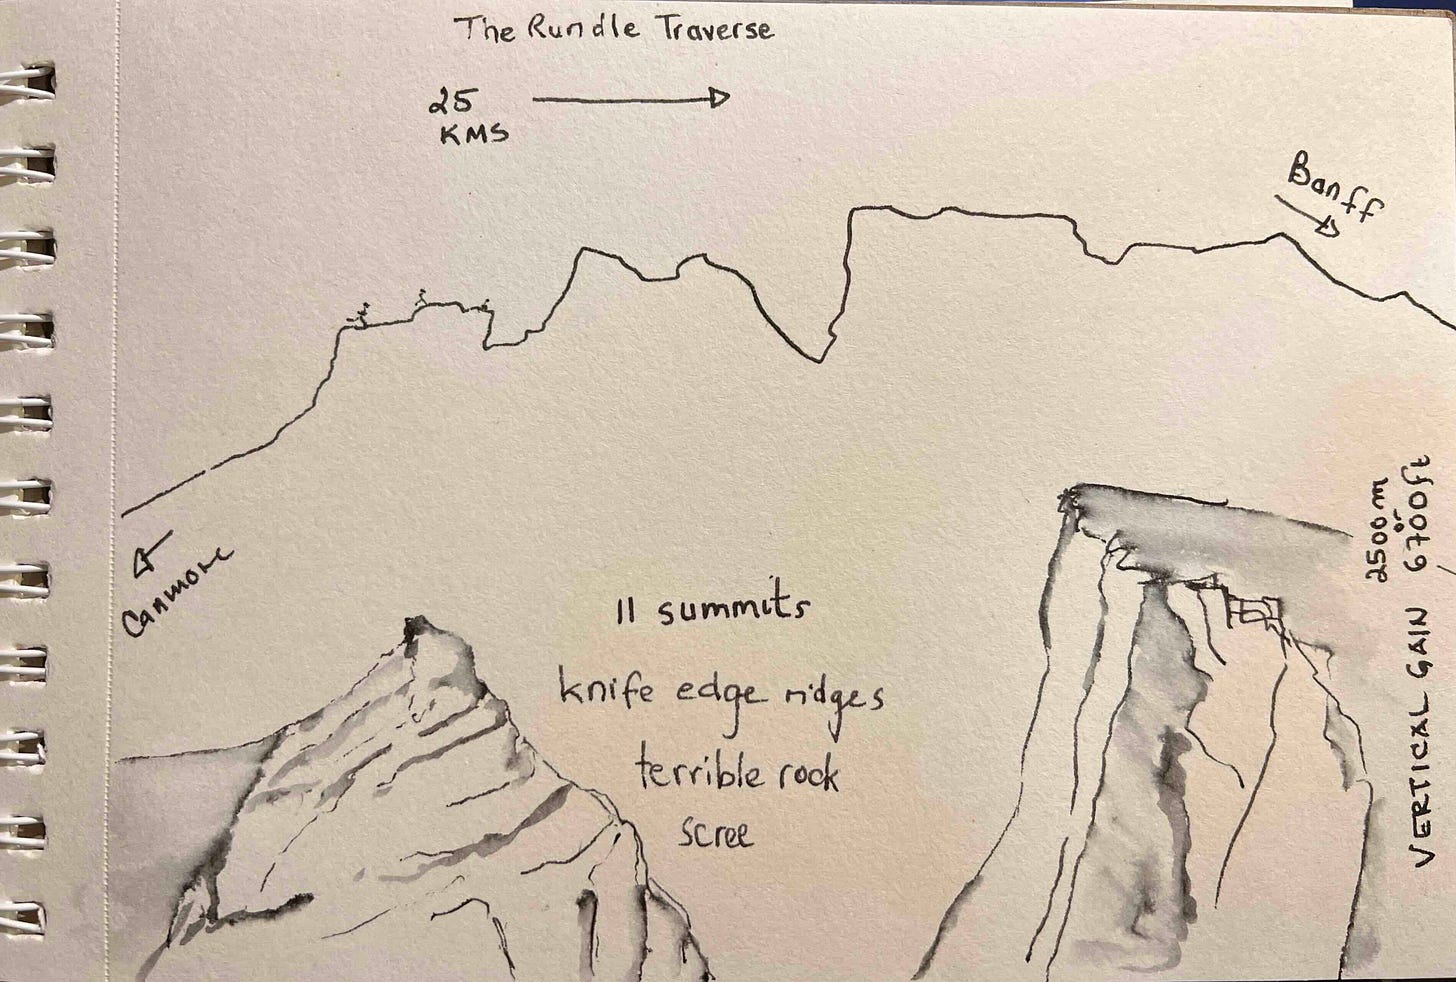 The Rundle Traverse
25
KMS
Banff
Canmore
11 summits
knife edge ridges
terrible rock
scree
VERTICAL GAIN
2500m
or
6700ft